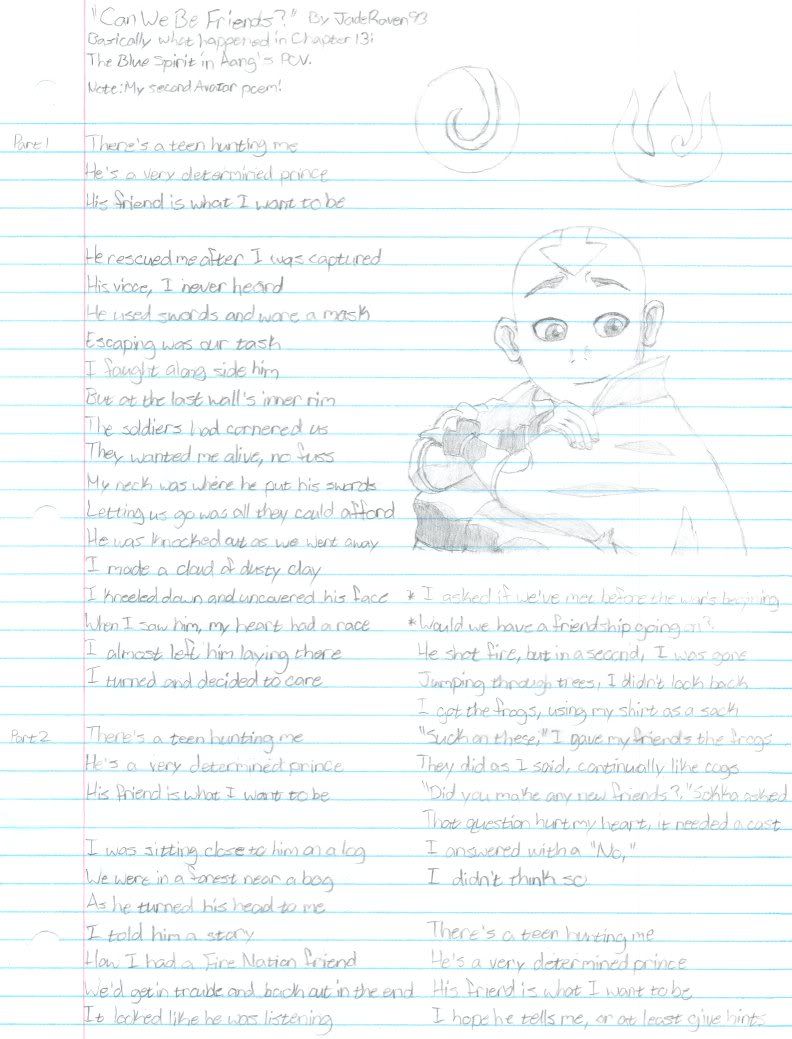 "Can We Be Friends?" By JadeRaven93
Basically what happened in Chapter 13:
The Blue Spirit in Aang's POV.
Note: My second Avatar poem!
Part 1
There's a teen hunting me
He's a very determined prince
His friend is what I want to be
He rescued me after I was captured
His vioce, I never heard
He used swords and wore a mask
Escaping was our task
I fought along side him
But at the last wall's inner rim
The soldiers had cornered us
They wanted me alive, no fuss
My neck was where he put his swords
Letting us go was all they could afford
He was knocked out as we went away
I made a cloud of dusty clay
I kneeled down and uncovered his face
When I saw him, my heart had a race
I almost left him laying there
I turned and decided to care
Part 2
There's a teen hunting me
He's a very determined prince
His friend is what I want to be
I was sitting close to him on a log
We were in a forest near a bog
As he turned his head to me
I told him a story
How I had a Fire Nation friend
We'd get in trouble and back out in the end
It looked like he was listening
* I asked if we've met before the war's begining
* Would we have a friendship going on?
He shot fire, but in a second, I was gone
Jumping through trees, I didn't look back
I got the frogs, using my shirt as a sack
"Suck on these," I gave my friends the frogs
They did as I said, continually like cogs
"Did you make any new friends?," Sokka asked
That question hurt my heart, it needed a cast
I answered with a "No,"
I didn't think so
There's a teen hunting me
He's a very determined prince
His friend is what I want to be
I hope he tells me, or at least give hints